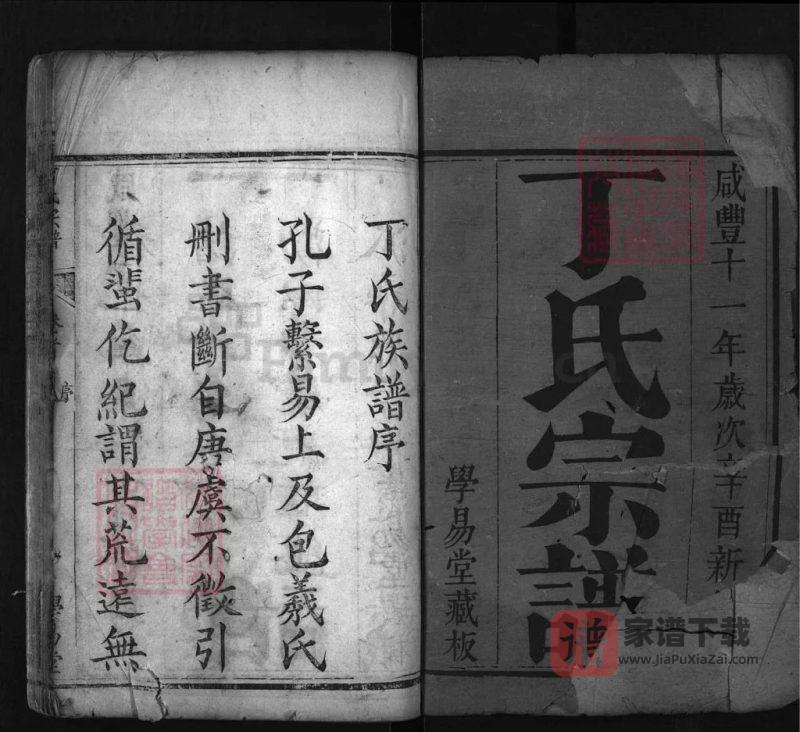 咸豐十一年歲次辛酉新
丁氏宗譜
學易堂藏板
丁氏族譜序
孔子繫易上及包羲氏
刪書斷自唐虞不徵引
循蜚仡紀謂其荒遠無
序
家谱下载
www.JiaPuXiaZai.com